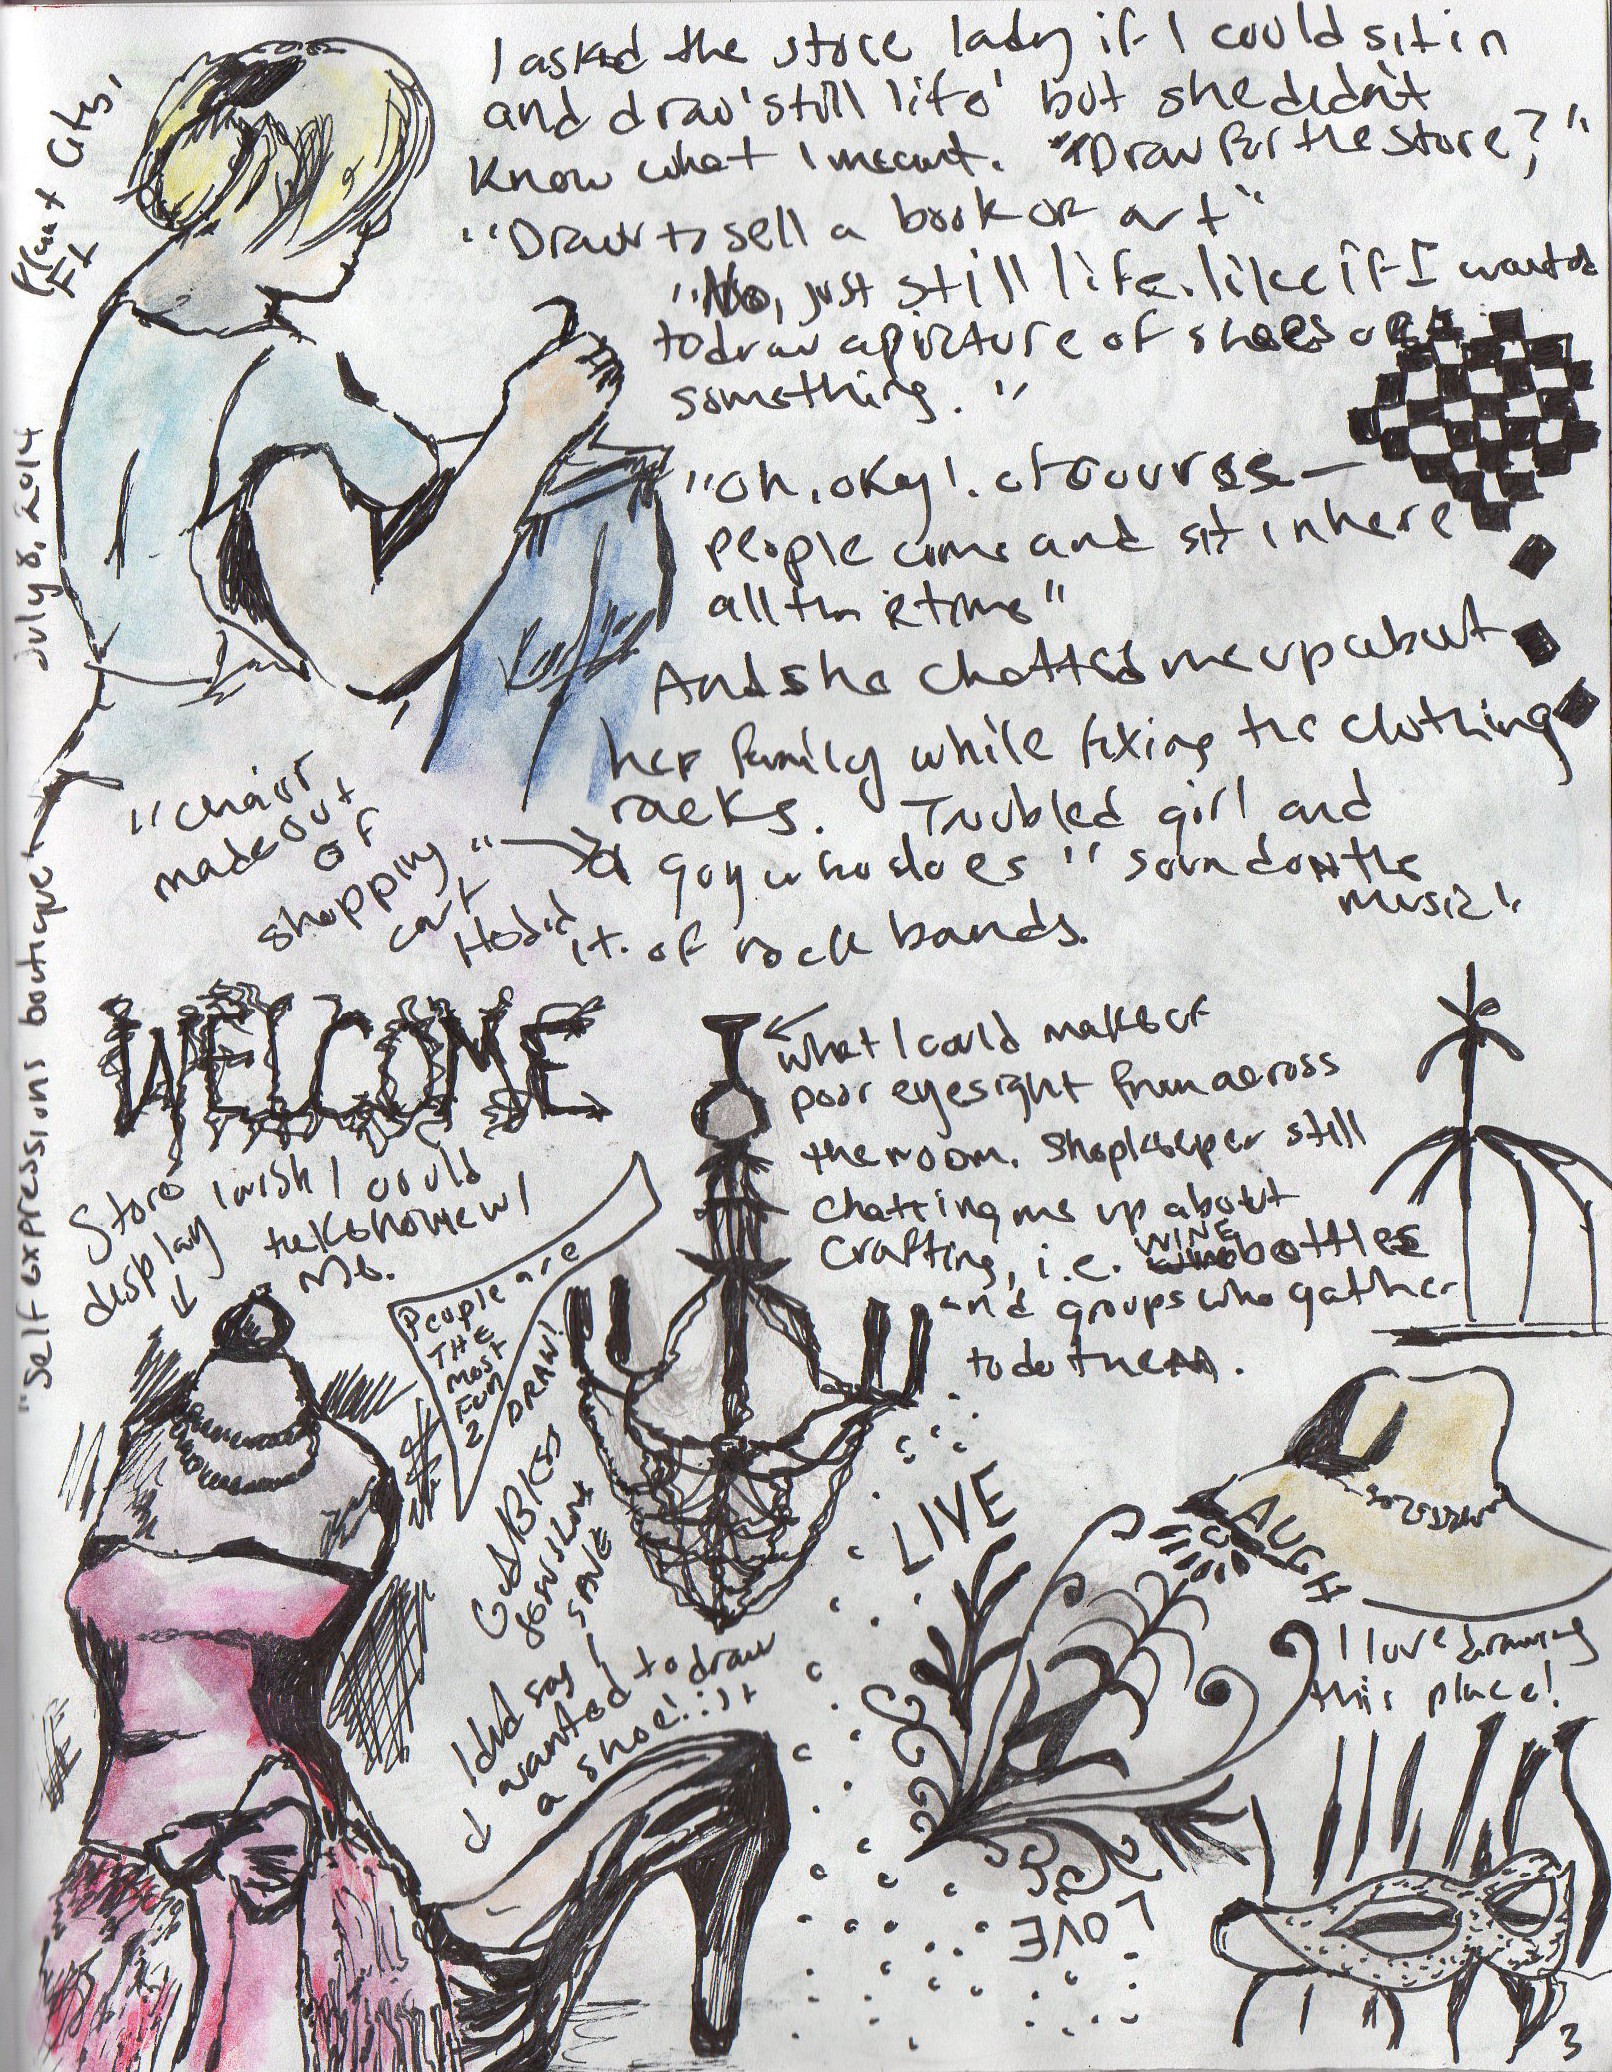 Plant City,
FL
July 8, 2014
"Self expressions boutique"
I asked the store lady if I could sit in
and draw 'still life' but she didn't
know what I meant. "Draw for the store?"
"Draw to sell a book or art"
"No, just still life. like if I wanted
to draw a picture of shoes or
something."
"Oh, okay!. of course —
people come and sit in here
all the time"
And she chatted me up about
her family while fixing the clothing
racks. Troubled girl and
a guy who does "sound on the
music"
of rock bands.
"chair
made out
of
shopping"
cart
He did
it.
WELCOME
Store
display
I wish I could
take home w/
me.
What I could make of
poor eyesight from across
the room. Shopkeeper still
chatting me up about
crafting, i.e. WINE bottles
and groups who gather
to do them.
People are
THE
MOST
FUN
2 DRAW!
I did say I
wanted to draw
a shoe! :)
LIVE
LAUGH
LOVE
I love drawing
this place!
3